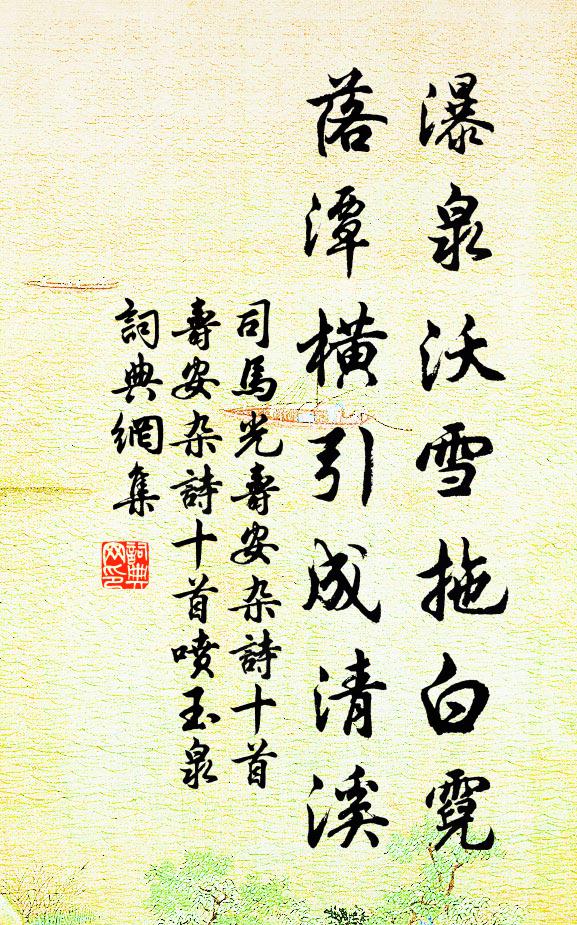 瀑泉沃雪拖白霓
落潭横引成清溪
司馬光壽安杂詩十首
壽安杂詩十首喷玉泉
詞典網集
詞典
网印